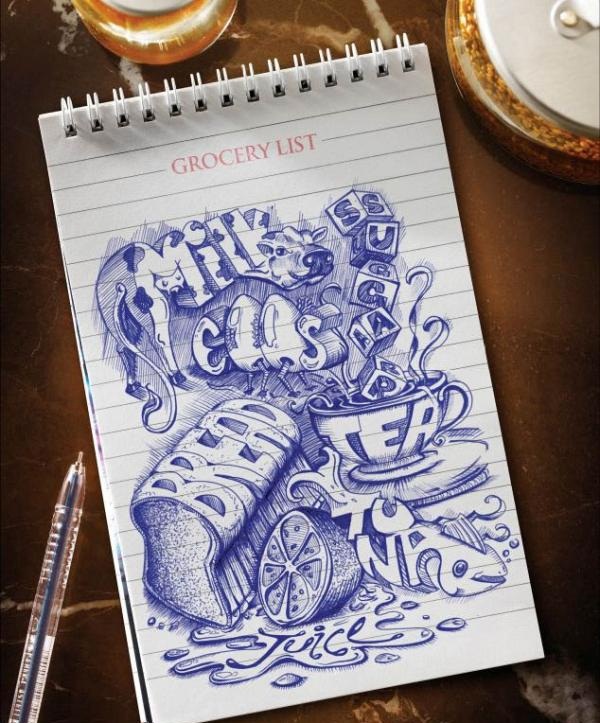 GROCERY LIST
MILK
SUGAR
EGGS
TEA
BREAD
TUNA
Juice